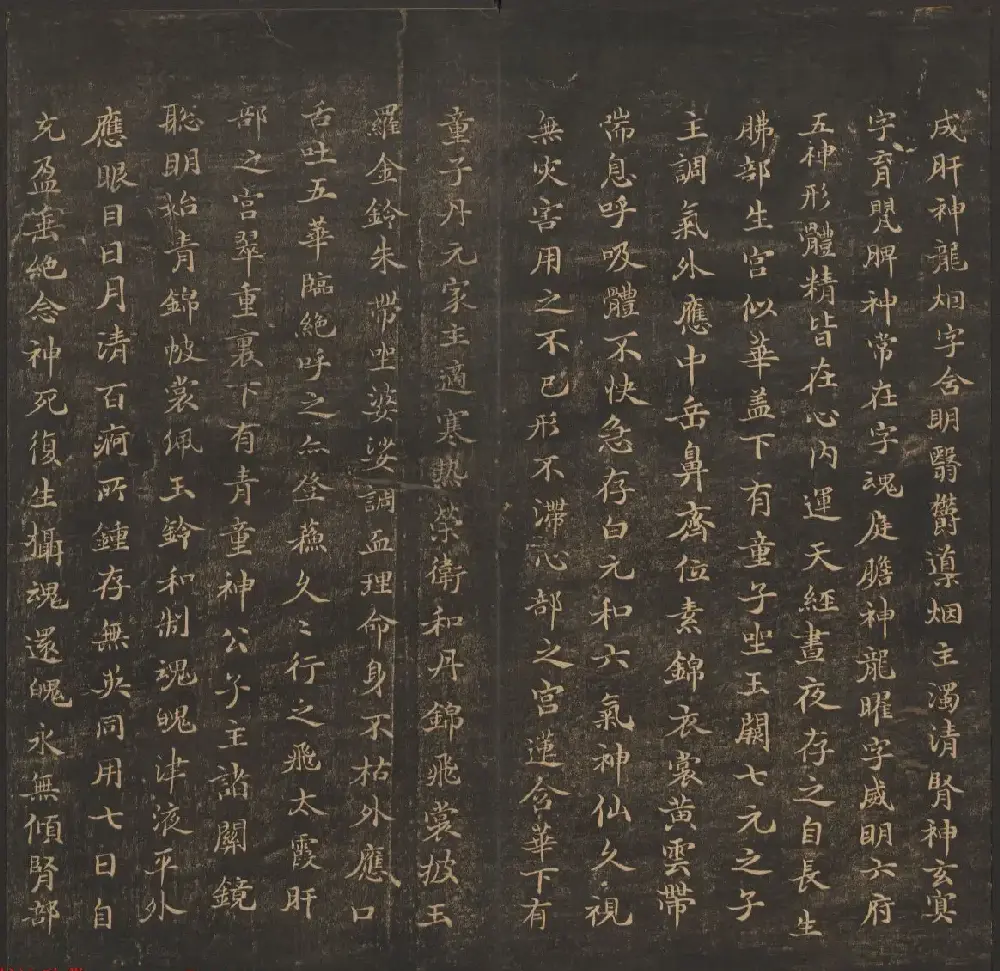 成肝神龍烟字含明翳欝導烟主濁清腎神玄冥
字育嬰脾神常在字魂庭膽神龍曜字威明六府
五神形體精皆在心内運天經晝夜存之自長生
肺部生宮似華盖下有童子坐玉闕七元之子
主調氣外應中岳鼻齊位素錦衣裳黃雲帶
喘息呼吸體不快急存白元和六氣神仙久視
無灾害用之不已形不滯心部之宮蓮含華下有
童子丹元家主適寒熱榮衛和丹錦飛裳披玉
羅金鈴朱帶坐婆娑調血理命身不枯外應口
舌吐五華臨絕呼之亦登蘇久〻行之飛太霞肝
部之宮翠重裏下有青童神公子主諸關鏡
聡明始青錦帔裳佩玉鈴和制魂魄津液平外
應眼目日月清百痾所鍾存無英同用七日自
充盈垂絕念神死復生攝魂還魄永無傾腎部